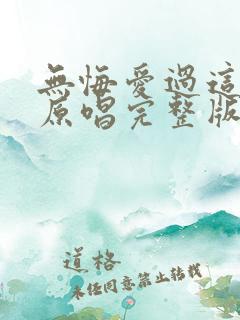 無悔愛過這
原唱完整版
道格
未经同意禁止转载